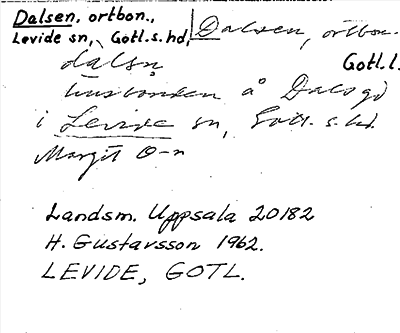 Dalsen, ortbon.,
Levide sn, Gotl.s.hd,
Dalsen, ortbon.
Gotl.l.
dalsn
husbonden å Dalsgd
i Levide sn, Gotl. s. hd.
Margit O-n
Landsm. Uppsala 20182
H. Gustavsson 1962.
LEVIDE, GOTL.